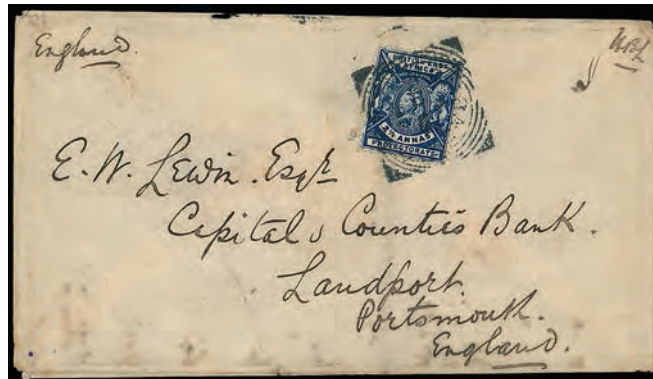 England.
BRITISH EAST
AFRICA
2½ ANNAS
PROTECTORATE
E. W. Lewin. Esqr
Capital & Counties Bank.
Landport.
Portsmouth.
England.